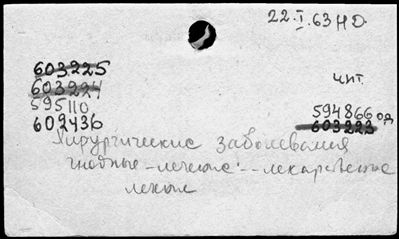 22.I.63 НО
603225
чит.
603224
595110
594866 од
602436
603223
Хирургические заболевания
гнойные - лечение - лекарственное
лечение